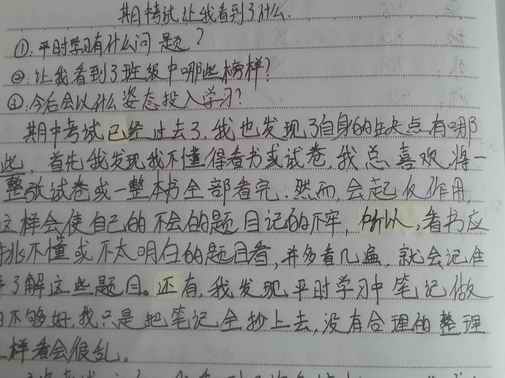 期中考试让我看到了什么
①.平时学习有什么问题?
②.让我看到了班级中哪些榜样?
③.今后会以什么姿态投入学习?
期中考试已经过去了,我也发现了自身的缺点有哪
些,首先我发现我不懂得看书或试卷,我总喜欢将一
整张试卷或一整本书全部看完.然而,会起反作用,
这样会使自己的不会的题目记的不牢,所以,看书应
挑不懂或不太明白的题目看,并多看几遍,就会记住
了解这些题目。还有,我发现平时学习中笔记做
的不够好,我只是把笔记全抄上去,没有合理的整理
样看会很乱。